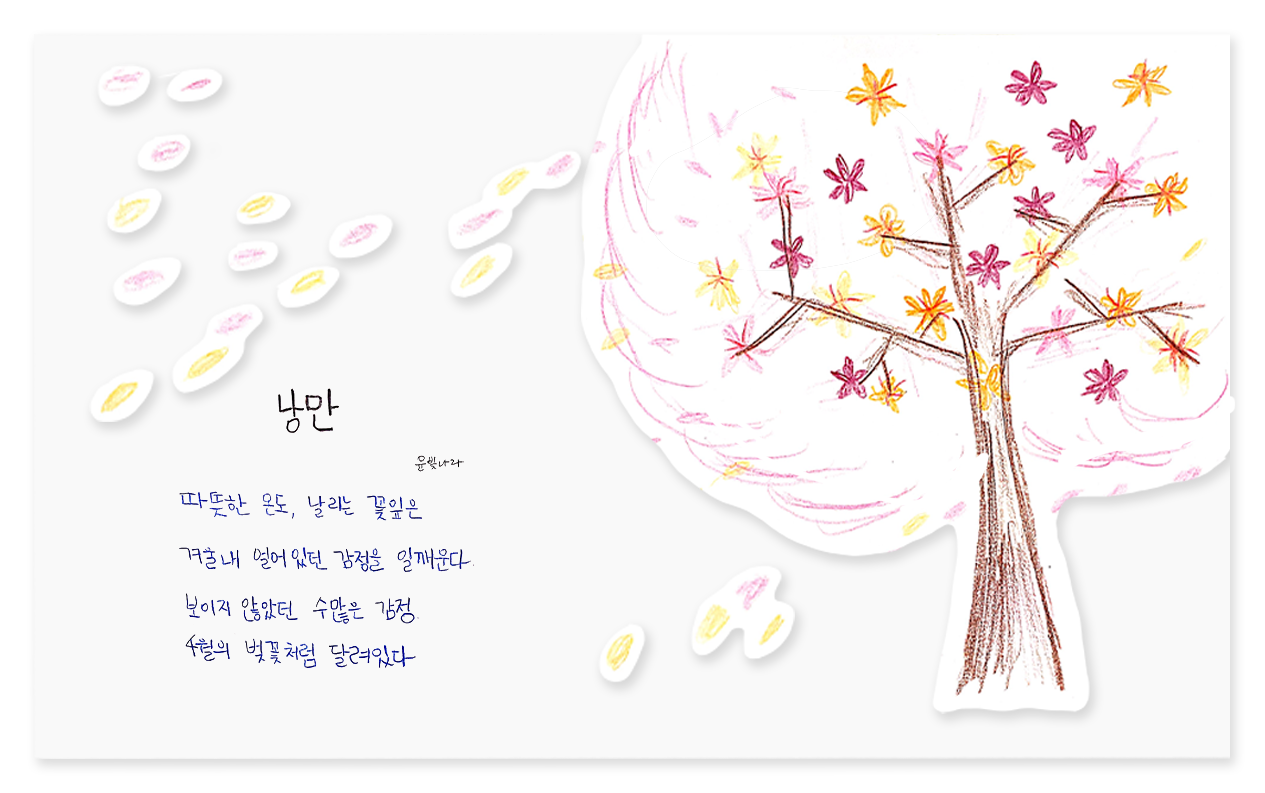 낭만
윤빛나라
따뜻한 온도, 날리는 꽃잎은
겨울내 얼어있던 감정을 일깨운다.
보이지 않았던 수많은 감정.
4월의 벚꽃처럼 달려있다